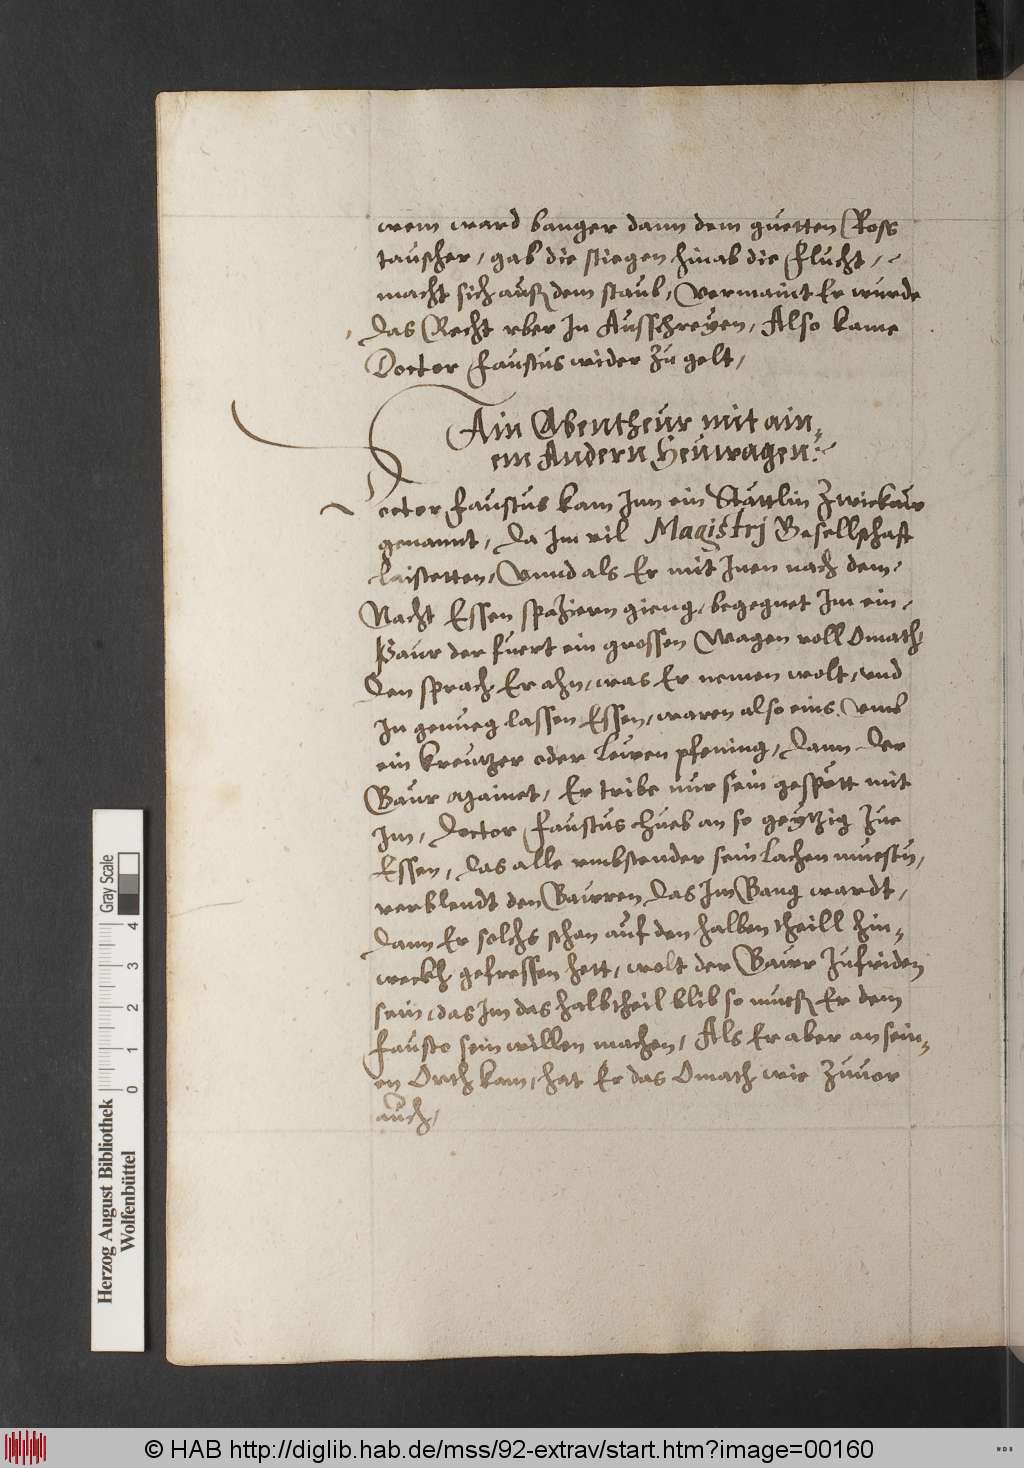 wem ward banger dann dem guetten Ross
tauscher, gab die stiegen hinab die flucht,
macht sich auß dem staub, vermaint Er wurde
das Recht vber In Ausschreyen, Also kame
Doctor Faustus wider zu gelt,
Ain Abentheur mit ain,
em Andern Heuwagen:
Doctor Faustus kam Inn ein Stättlin Zwickaw
genannt, da Im vil Magistrj Gesellschaft
laisteten, Vnnd als Er mit Inen nach dem
Nacht Essen spaziern gieng, begegnet Im ein
Paur der fuert ein grossen Wagen voll Omath
den sprach Er ahn, was Er nemen wolt, vnd
In genueg lassen Essen, waren also eins vmb
ein kreutzer oder lewen pfening, dann der
Baur againet, Er tribe nur sein gespött mit
Im, Doctor Faustus hueb an so geytzig zue
Essen, das alle vmbstender sein lachen muesten,
verblendt den Bawren das Im Bang wardt,
dann Er solchs schon auf den halben theill hin,
weckh gefressen hett, wolt der Bawr zufriden
sein, das Im das halbtheil blib so mueß Er dem
Fausto sein willen machen, Als Er aber an sein,
en Orth kam, hat Er das Omath wie zuuor
auch,
Gray Scale
0 1 2 3 4
Herzog August Bibliothek
Wolfenbüttel
© HAB http://diglib.hab.de/mss/92-extrav/start.htm?image=00160